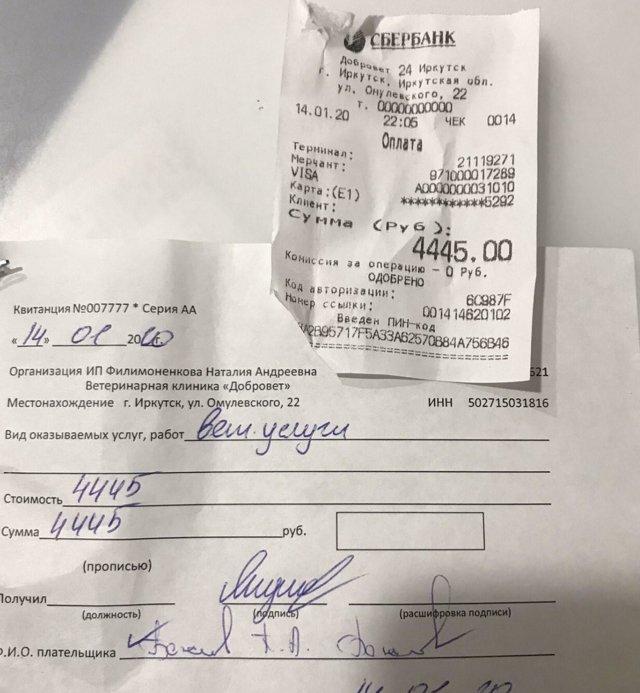 СБЕРБАНК
Добровет 24 Иркутск
г. Иркутск, Иркутская обл.
ул. Онулевского, 22
т. 00000000000
14.01.20 22:05 ЧЕК 0014
Оплата
Терминал: 21119271
Мерчант: 971000017289
VISA A0000000031010
Карта:(E1) ************5292
Клиент:
Сумма (Руб):
4445.00
Комиссия за операцию - 0 Руб.
ОДОБРЕНО
Код авторизации: 6C987F
Номер ссылки: 001414620102
Введен ПИН-код
3A2B95717F5A33A62570B84A756B46
==============================
Квитанция №007777 * Серия АА
«14» 01 2020
Организация ИП Филимоненкова Наталия Андреевна 621
Ветеринарная клиника «Добровет»
Местонахождение г. Иркутск, ул. Омулевского, 22 ИНН 502715031816
Вид оказываемых услуг, работ вет. услуги
Стоимость 4445
Сумма 4445 руб.
(прописью)
Получил
(должность) (подпись) (расшифровка подписи)
Ф.И.О. плательщика